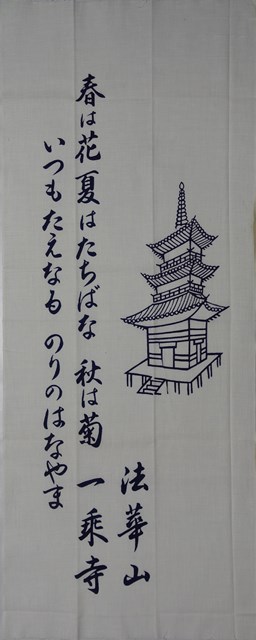 法華山
一乗寺
春は花 夏はたちばな 秋は菊
いつもたえなる のりのはなやま